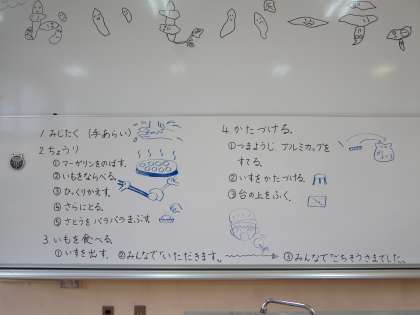 1 みじたく (手あらい)
2 ちょうり
①マーガリンをのばす。
②いもをならべる。
③ひっくりかえす。
④さらにとる。
⑤さとうをパラパラまぶす
3 いもを食べる。
①いすを出す。 ②みんなで"いただきます。 ③みんなで"ごちそうさまでした。
4 かたづける。
①つまようじ アルミカップを
すてる。
②いすをかたづける。
③台の上をふく。